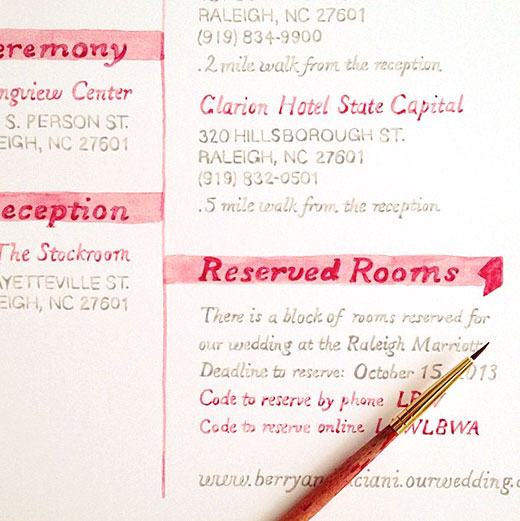 eremony
ngview Center
S. PERSON ST.
EIGH, NC 27601
eception
The Stockroom
AYETTEVILLE ST.
EIGH, NC 27601
RALEIGH, NC 27601
(919) 834-9900
.2 mile walk from the reception
Clarion Hotel State Capital
320 HILLSBOROUGH ST.
RALEIGH, NC 27601
(919) 832-0501
.5 mile walk from the reception
Reserved Rooms
There is a block of rooms reserved for
our wedding at the Raleigh Marriott
Deadline to reserve: October 15, 2013
Code to reserve by phone
Code to reserve online